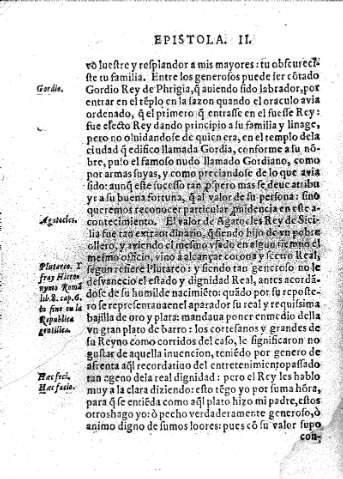 EPISTOLA. II.
vò lustre y resplandor a mis mayores: tu obscureci-
ste tu familia. Entre los generosos puede ser cõtado
Gordio.
Gordio Rey de Phrigia, q̃ auiendo sido labrador, por
entrar en el tẽplo en la sazon quando el oraculo avia
ordenado, q̃ el primero q̃ entrasse en el fuesse Rey:
fue efecto Rey dando principio a su familia y linage,
pero no oluidandose de quien era, en el templo de la
ciudad q̃ edifico llamada Gordia, conforme a su nõ-
bre, puso el famoso nudo llamado Gordiano, como
por armas suyas, y como preciandose de lo que avia
sido: aunq̃ este sucesso tan prospero mas se deue atribu
yr a su buena fortuna, q̃ al valor de su persona: sino
queremos reconocer particular prouidencia en este a-
Agatocles.
contecimiento. El valor de Agatocles Rey de Sici-
lia fue tan extraordinario, q̃ siendo hijo de vn pobre
ollero, y aviendo el mesmo vsado en algun tiempo el
mesmo officio, vino a alcançar corona y sceptro Real,
Plutarco. Y
fray Hiero
nymo Romã
lib.2. cap.6.
to fine en la
Republica
gentilica.
segun refiere Plutarco: y siendo tan generoso no le
desvanecio el estado y dignidad Real, antes acordã-
dose de su humilde nacimiẽto: quãdo por su reposte-
ro se representaua en el aparador su real y requissima
bajilla de oro y plata: mandaua poner en medio della
vn gran plato de barro: los cortesanos y grandes de
su Reyno como corridos del caso, le significaron no
gustar de aquella inuencion, teniẽdo por genero de
afrenta aq̃l recordatiuo del entretenimiento passado
Hæc feci,
Hæc facio.
tan ageno de la real dignidad: pero el Rey les hablo
muy a la clara diziendo: esto tẽgo yo por suma hõra,
para q̃ se entiẽda como aq̃l plato hizo mi padre, estos
otros hago yo: ò pecho verdaderamente generoso, ò
animo digno de sumos loores: pues cõ su valor supo
con-